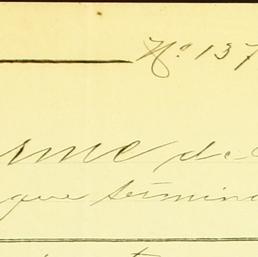 Nº 137
rme de
que termina